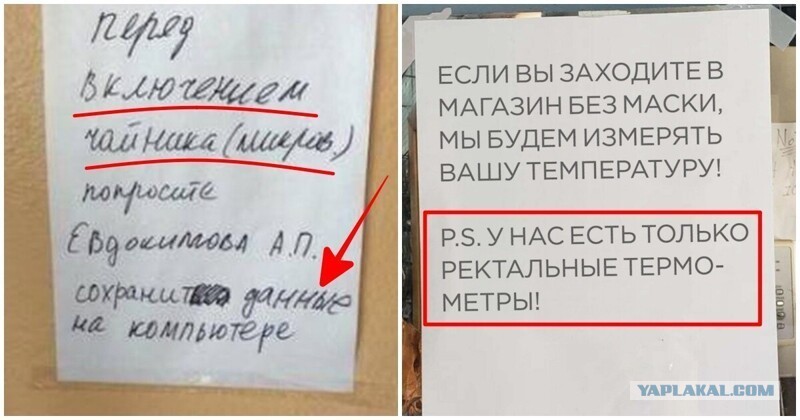 перед
включением
чайника (микров.)
попросите
Евдокимова А.П.
сохранить данные
на компьютере
ЕСЛИ ВЫ ЗАХОДИТЕ В
МАГАЗИН БЕЗ МАСКИ,
МЫ БУДЕМ ИЗМЕРЯТЬ
ВАШУ ТЕМПЕРАТУРУ!
P.S. У НАС ЕСТЬ ТОЛЬКО
РЕКТАЛЬНЫЕ ТЕРМО-
МЕТРЫ!
YAPLAKAL.COM